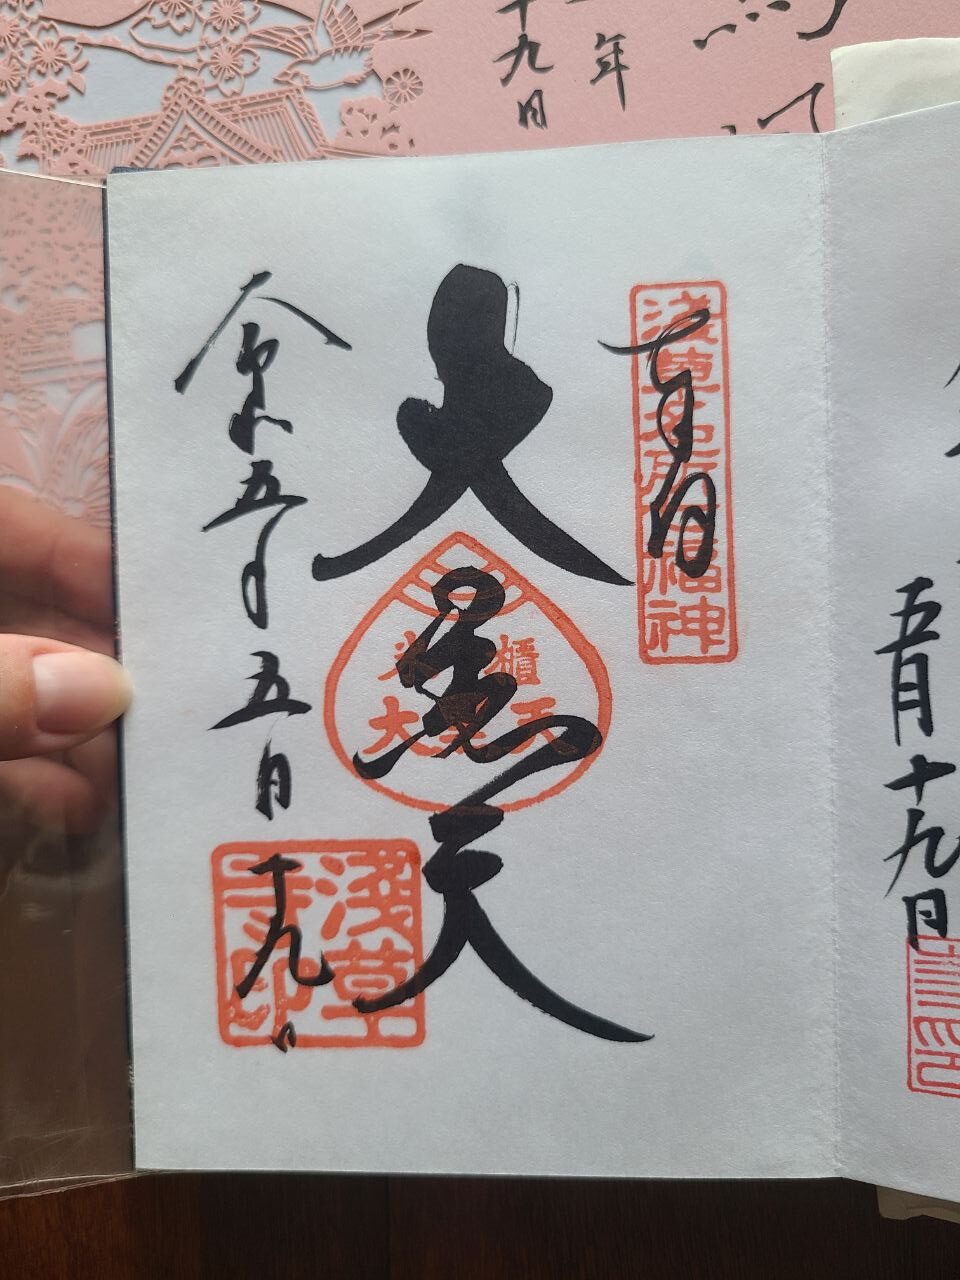 奉拝
浅草名所七福神
大黒天
米櫃
大黒天
令和五年五月十九日
浅草寺印
五月十九日
年
十九日